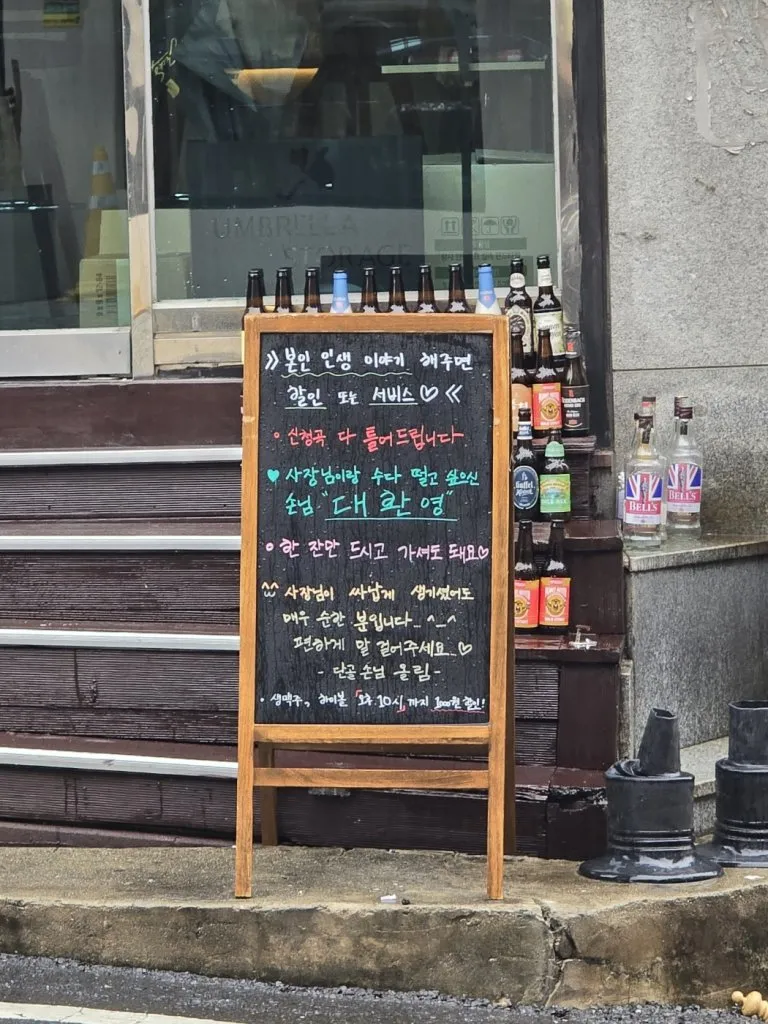 UMBRELLA
STORAGE
》본인 인생 이야기 해주면
할인 또는 서비스♡《
• 신청곡 다 틀어드립니다
♥ 사장님이랑 수다 떨고 싶으신
손님 "대환영"
• 한 잔만 드시고 가셔도 돼요♡
^^ 사장님이 싸납게 생기셨어도
매우 순한 분입니다.. ^_^
편하게 말 걸어주세요..♡
- 단골손님 올림 -
• 생맥주, 하이볼 "오후 10시" 까지 1000원 할인!
BELL'S
BELL'S
Gaffel